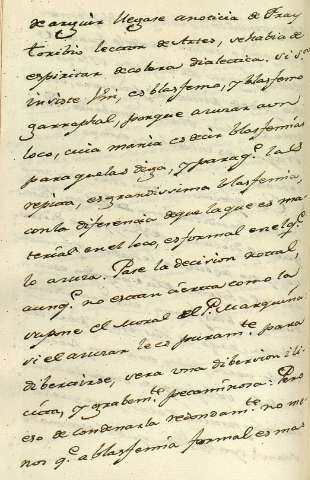 de arguir llegase a noticia de Fray
Toribio lector de Artes, se habia de
espiritar de colera dialectica. Si S.or
insiste, es blasfemo, y blasfemo
garrafal, porque azuzar a un
loco, cuia mania es decir blasfemias
para que las diga, y para q.e las
repita, es grandissima blasfemia,
con la diferencia de que la que es ma
terial en el loco, es formal en el q.e
lo azuza. Pase la decision
aunq.e no es tan cierta como la
supone el Moral el P.e Marquina
si el azuzar le es puram.te para
diberirse, sera una dibersion ili
cita, y grabem.te pecaminosa: Pero
eso de condenarla redondam.te no me
nos q.e a blasfemia formal es mas